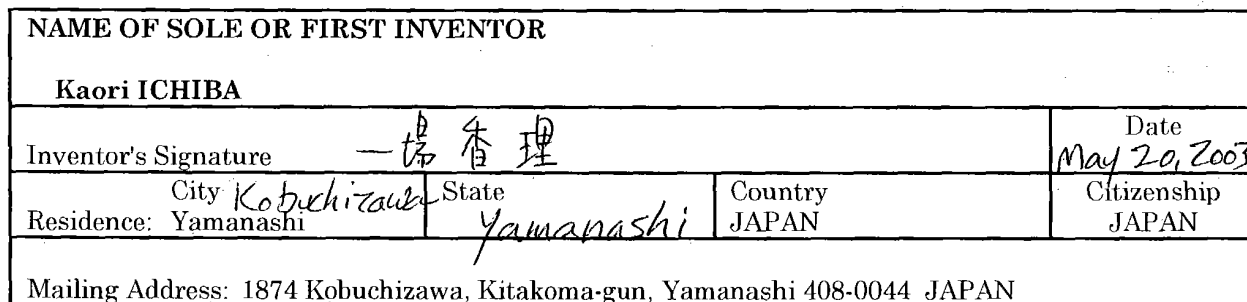 NAME OF SOLE OR FIRST INVENTOR
Kaori ICHIBA
Inventor's Signature 一場香理 Date May 20, 2003
Residence: City Kobuchizawa Yamanashi State Yamanashi Country JAPAN Citizenship JAPAN
Mailing Address: 1874 Kobuchizawa, Kitakoma-gun, Yamanashi 408-0044 JAPAN